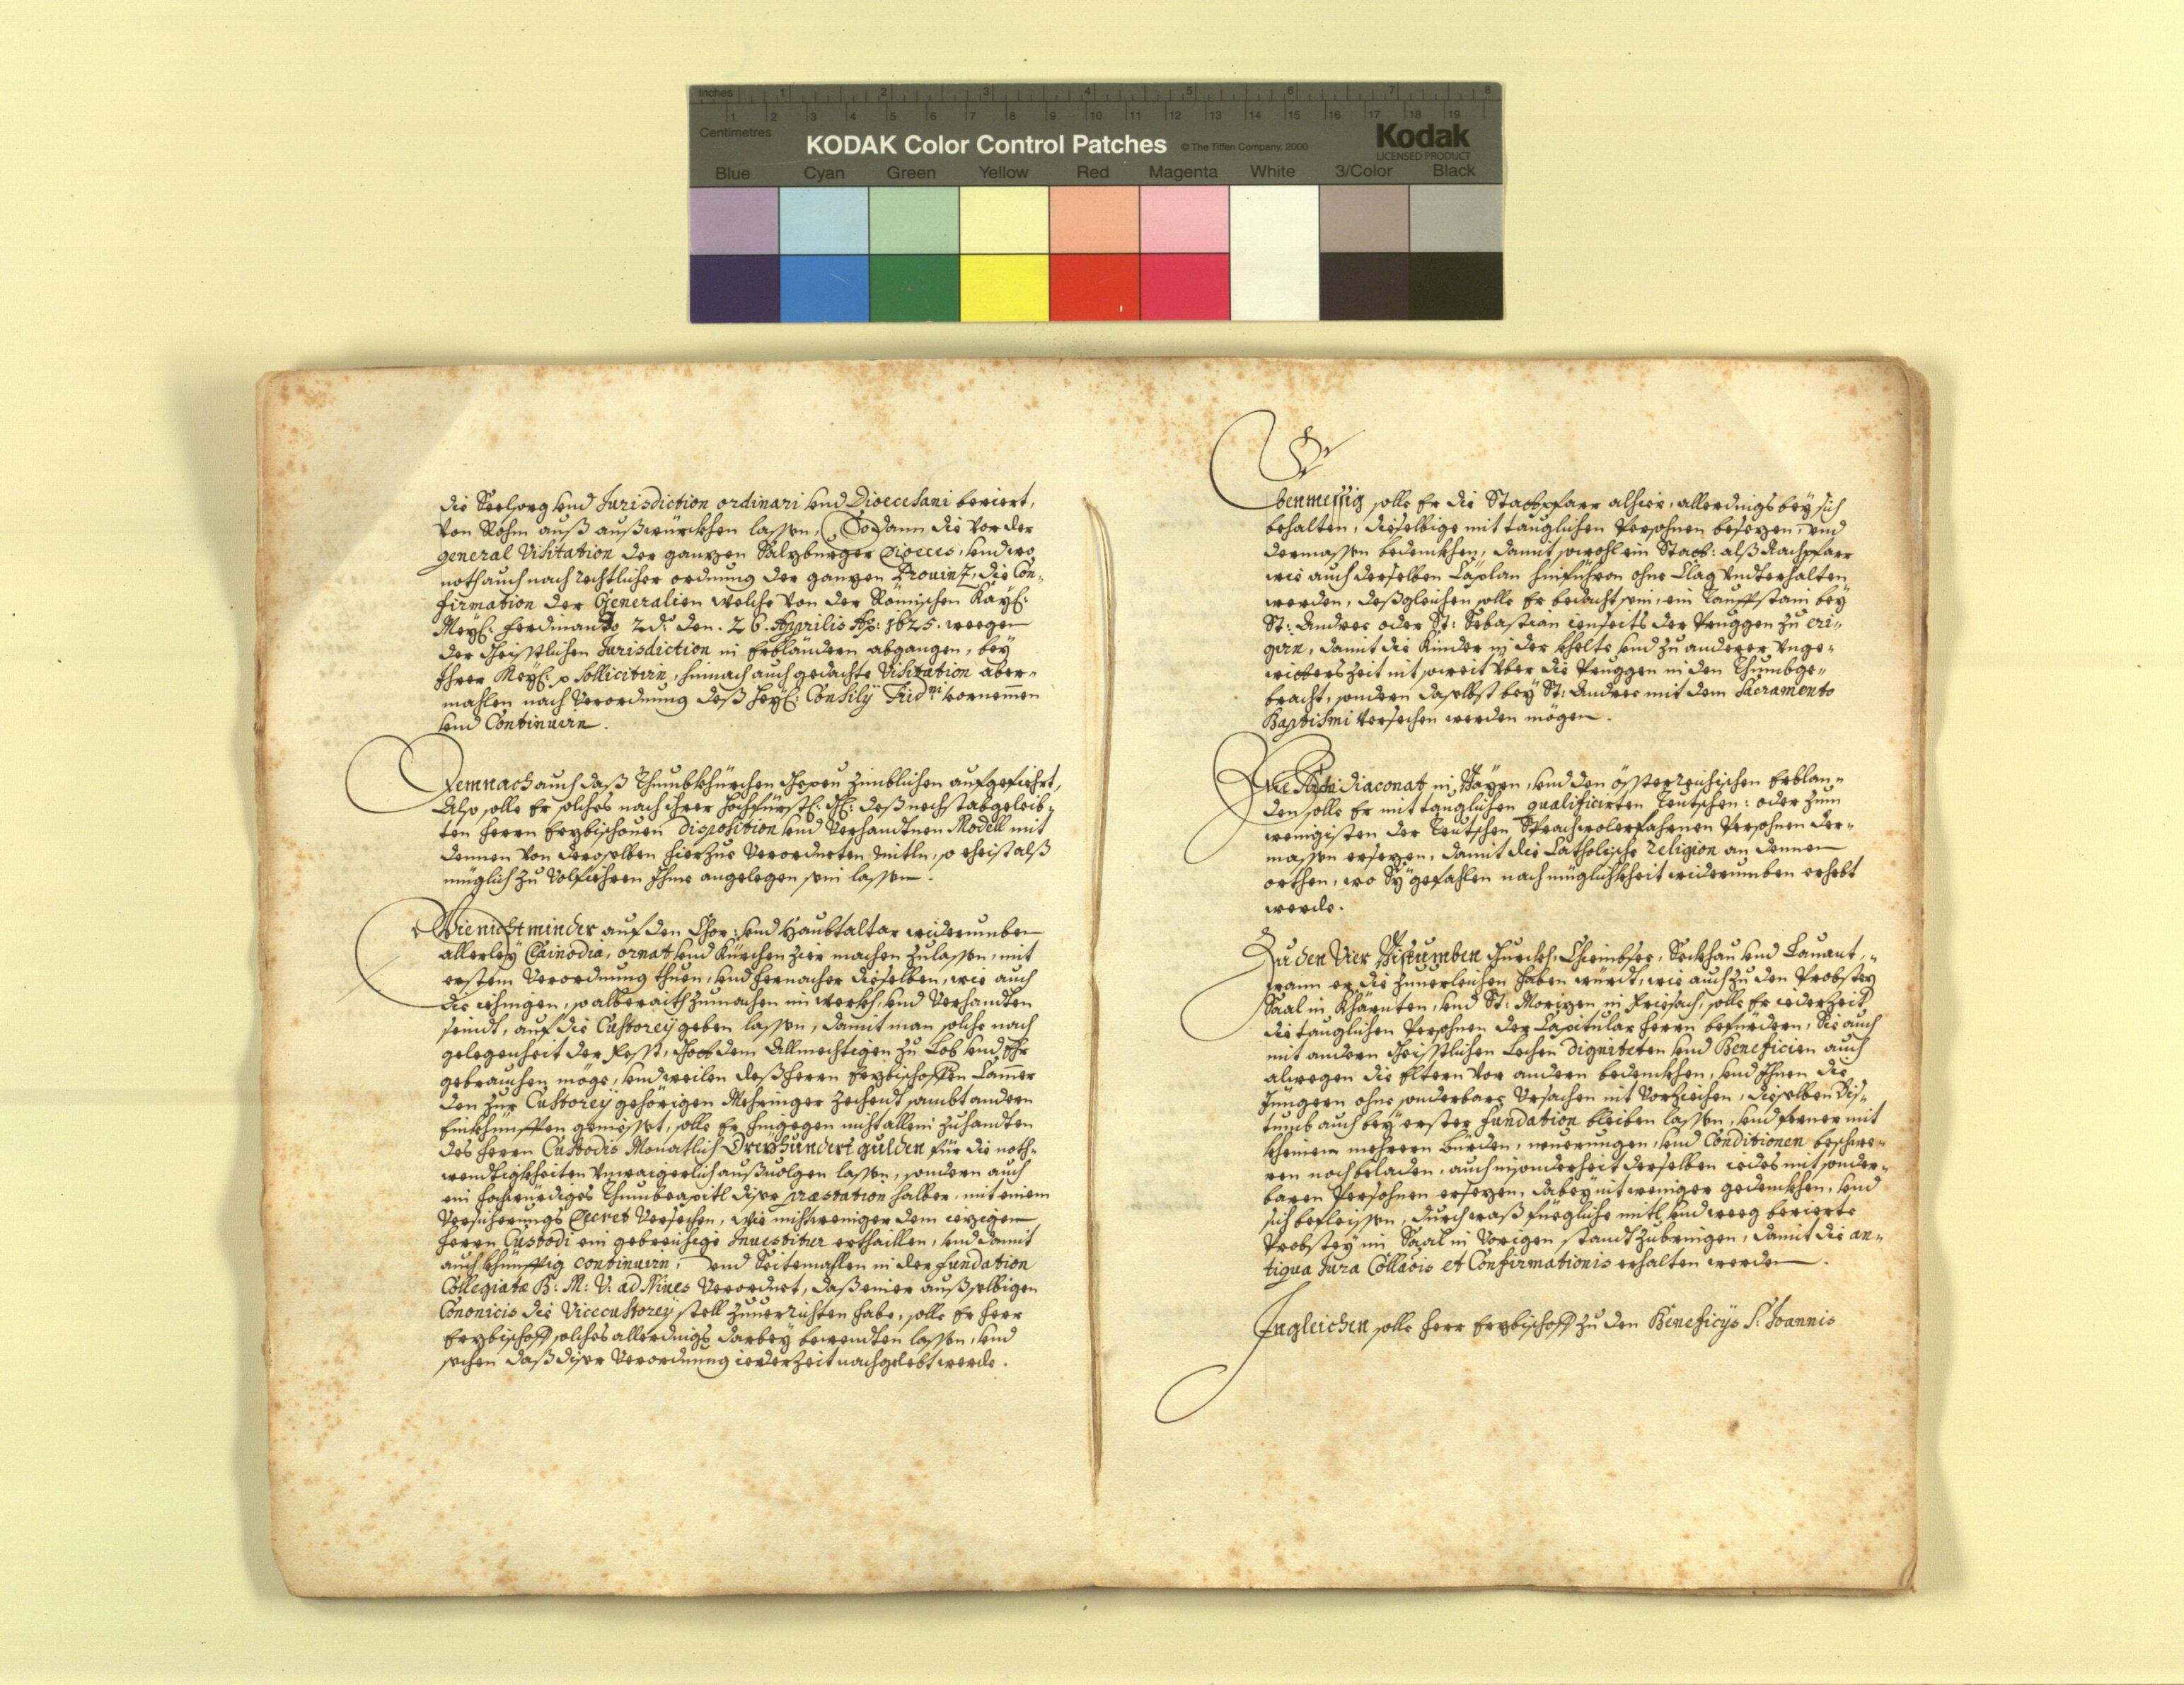 Inches 1 2 3 4 5 6 7 8
1 2 3 4 5 6 7 8 9 10 11 12 13 14 15 16 17 18 19
Centimetres
KODAK Color Control Patches © The Tiffen Company, 2000 Kodak
LICENSED PRODUCT
Blue Cyan Green Yellow Red Magenta White 3/Color Black
die Seelsorg vnd Jurisdiction ordinari vnd Dioecesani beriert,
von Rohm auß außwürckhen lassen, So dann die vor der
general Visitation der ganzen Salzburger Dioeces, vnd wo
noth auch nach rechtlicher ordnung der ganzen Prouintz, die Con-
firmation der Generalien welche von der Römischen Kayß:
Mayß: Ferdinando 2do: den. 26. Aprilis Ao: 1625. wegen
der Geistlichen Jurisdiction in Erbländern abgangen, bey
Ihrer Mayß: p Sollicitirn, hinnach auch gedachte Visitation aber-
mahlen nach Verordnung deß Heyl: Consilÿ Tridni: vornemmen
vnd Continuirn.
Demnach auch daß Thumbkhürchen Gepeu zimblichen aufgefiehrt,
Also solle Er solches nach ihrer Hochfürstl: Gl: deß nechst abgeleib-
ten Herrn Erzbischouen disposition vnd verhandtnen Modell mit
dennen von deroselben hierzue verordneten mitln, so eheist alß
müglich zu volfiehren Ihme angelegen sein lassen.
Wie nicht minder auf den Chor: vnd Haubtaltar widerumben
allerleÿ Clainodia, ornat vnd Kürchen zier machen zulassen, mit
erstem verordnung thuen, vnd hernacher dieselben, wie auch
die iehnigen, so alberaith zumachen im werkh, vnd verhandten
seindt, auf die Custoreÿ geben lassen, damit man solche nach
gelegenheit der Fesst, Gott dem Allmechtigen zu Lob vnd Ehr
gebrauchen möge, vnd weilen deß Herrn Erzbischoffen Cammer
den zur Custoreÿ gehörigen Mehringer Zechent sambt andern
Einkhünfften geniesset, solle Er hingegen nicht allein zuhandten
des Herrn Custodis Monatlich Dreÿhundert gulden für die noth-
wendtigkheiten vnwaigerlich außuolgen lassen, sondern auch
ein Hochwürdiges Thumbcapitl diser praestation halber, mit einem
Versicherungs Decret versechen, wie nicht weniger dem iezigen
Herrn Custodi ein gebreichige Inuestitur erthaillen, vnd damit
auch khünfftig continuirn, Vnd Seitemahlen in der fundation
Collegiatae B: M: V: ad Niues verordnet, daß einer auß selbigen
Cononicis die Vicecustoreÿ stell zuuerrichten habe, solle Er Herr
Erzbischoff solches allerdings darbeÿ bewendten lassen, vnd
sechen daß diser verordnung iederzeit nachgelebt werde.
Ebenmessig solle Er die Stattpfarr alhier, allerdings beÿ sich
behalten, dieselbige mit tauglichen Persohnen besezen, vnd
dermassen bedenckhen, damit sowohl ein Statt: alß Nachpfarr
wie auch derselben Caplan hinfüron ohne Clag vndterhalten
werden, deßgleichen solle Er bedacht sein, ein Tauffstain beÿ
St: Andree oder St: Sebastian ienseits der Pruggen zu eri-
girn, damit die Kinder in der Khelte vnd zu anderer vnge-
witters zeit nit so weit über die Pruggen in den Thumb ge-
bracht, sondern daselbst beÿ St: Andree mit dem Sacramento
Baptismi versechen werden mögen.
Die Archidiaconat in Bayrn, vnd den össterreichischen Erblan-
den solle Er mit tauglichen qualificirten Teutschen: oder zum
wenigisten der Teutschen Sprach wolerfahrnen Persohnen der-
massen ersezen, damit die Catholische Religion an dennen
orthen, wo Sÿ gefahlen nach müglichkheit widerumben erhebt
werde.
Zu den Vier Bistumben Gurckh, Chiembsee, Seckhau vnd Lauant,
wann er die zuuerleichen haben würdt, wie auch zu den Probsteÿ
Saal in Khärnten, vnd St: Morizen in Friesach, solle Er iederzeit
die tauglichen Persohnen der Capitular Herrn befürdern, Sie auch
mit andern Geistlichen Lechen Digniteten vnd Beneficien auch
alwegen die Eltern vor andern bedenckhen, vnd Ihnen die
Jüngern ohne sonderbare Vrsachen nit vorziechen, dieselben Bis-
tumb auch beÿ erster fundation bleiben lassen, vnd ferner mit
kheinen mehrern bürden, neuerungen, vnd Conditionen beschwe-
ren noch beladen, auch insonderheit derselben iedes mit sonder-
baren Persohnen ersezen, dabeÿ nit weniger gedenckhen, vnd
sich befleissen, durch waß fuegliche mitl vnd weeg berierte
Probsteÿ im Saal in vorigen standt zubringen, damit die an-
tiqua Jura Collaōis et Confirmationis erhalten werden.
Ingleichen solle Herr Erzbischoff zu den Beneficÿs S: Joannis